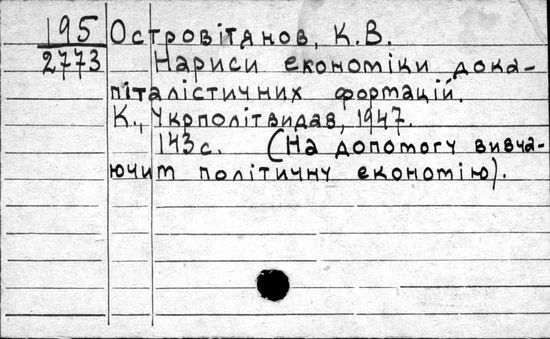 195 Островітянов, К.В.
2773 Нариси економіки дока-
піталістичних формацій.
К., Укрполітвидав, 1947.
143с. (На допомогу вивча-
ючим політичну економію).